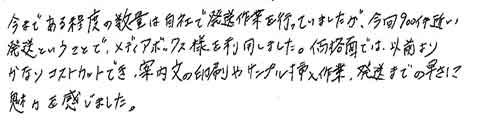 今まである程度の数量は自社で発送作業を行っていましたが、今回900件近い
発送ということで、メディアボックス様を利用しました。価格面では、以前より
かなりコストカットでき、案内文の印刷やサンプル挿入作業、発送までの早さに
魅力を感じました。